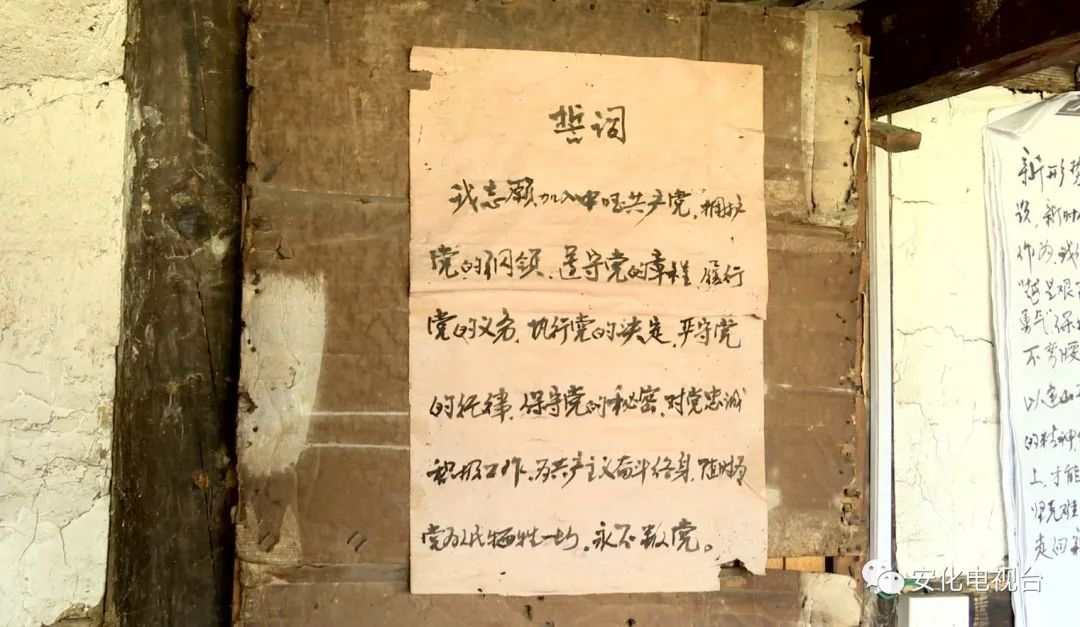 誓词
我志愿加入中国共产党，拥护
党的纲领、遵守党的章程 履行
党的义务，执行党的决定，严守党
的纪律，保守党的秘密，对党忠诚
积极工作，为共产主义奋斗终身，随时为
党为人民牺牲一切，永不叛党。
新形势
说，新时
作为我
越是艰
勇气
不弯腰
以
的精神
上，才能
坚克难
走向
安化电视台